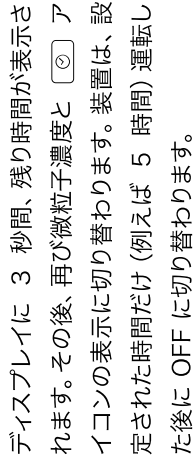 ディスプレイに 3 秒間、残り時間が表示さ
れます。その後、再び微粒子濃度と ア
イコンの表示に切り替わります。装置は、設
定された時間だけ (例えば 5 時間) 運転し
た後に OFF に切り替わります。